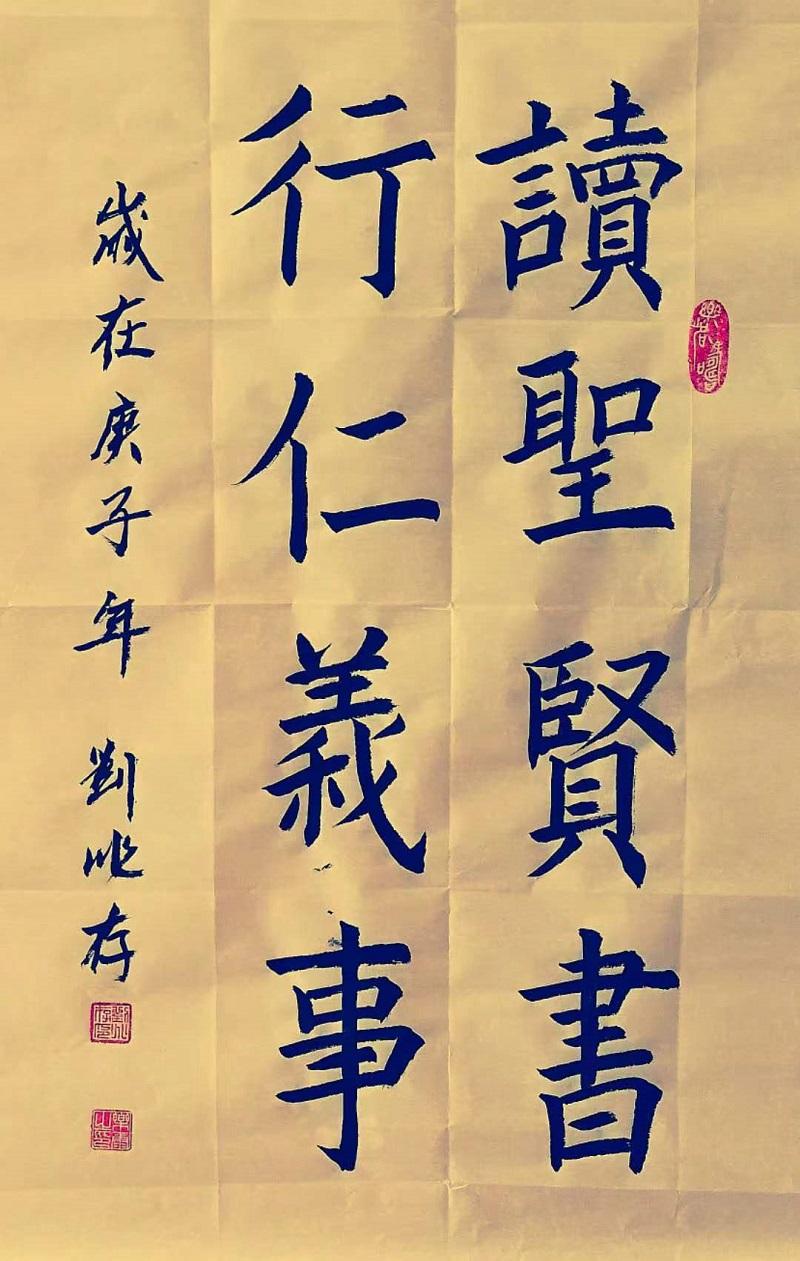 讀聖賢書
行仁義事
歲在庚子年 劉兆存